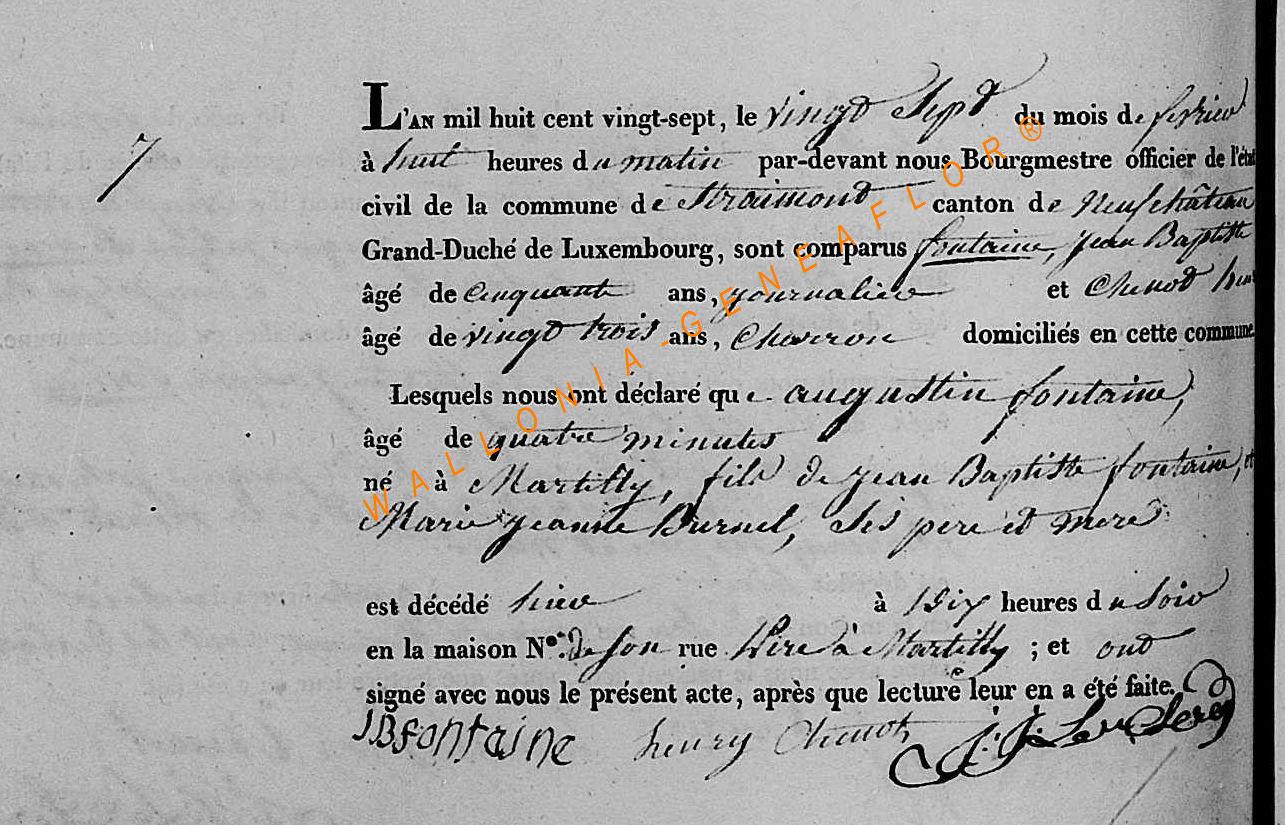 7
L'AN mil huit cent vingt-sept, le vingt Sept du mois de fevrier
à huit heures du matin par-devant nous Bourgmestre officier de l'état
civil de la commune de Straimont canton de Neufchâteau
Grand-Duché de Luxembourg, sont comparus fontaine, jean Baptiste
âgé de Cinquante ans, journalier et Chenot
âgé de vingt trois ans, Charron domiciliés en cette commune
Lesquels nous ont déclaré que augustin fontaine,
âgé de quatre minutes
né à Martilly, fils de jean Baptiste fontaine, et
Marie jeanne Burnel, Ses pere et mere
est décédé hier à Dix heures du Soir
en la maison No. de son rue Pere à Martilly ; et ont
signé avec nous le présent acte, après que lecture leur en a été faite.
JBfontaine henry Chenot J. J. Leclere
WALLONIA-GENEAFLOR®